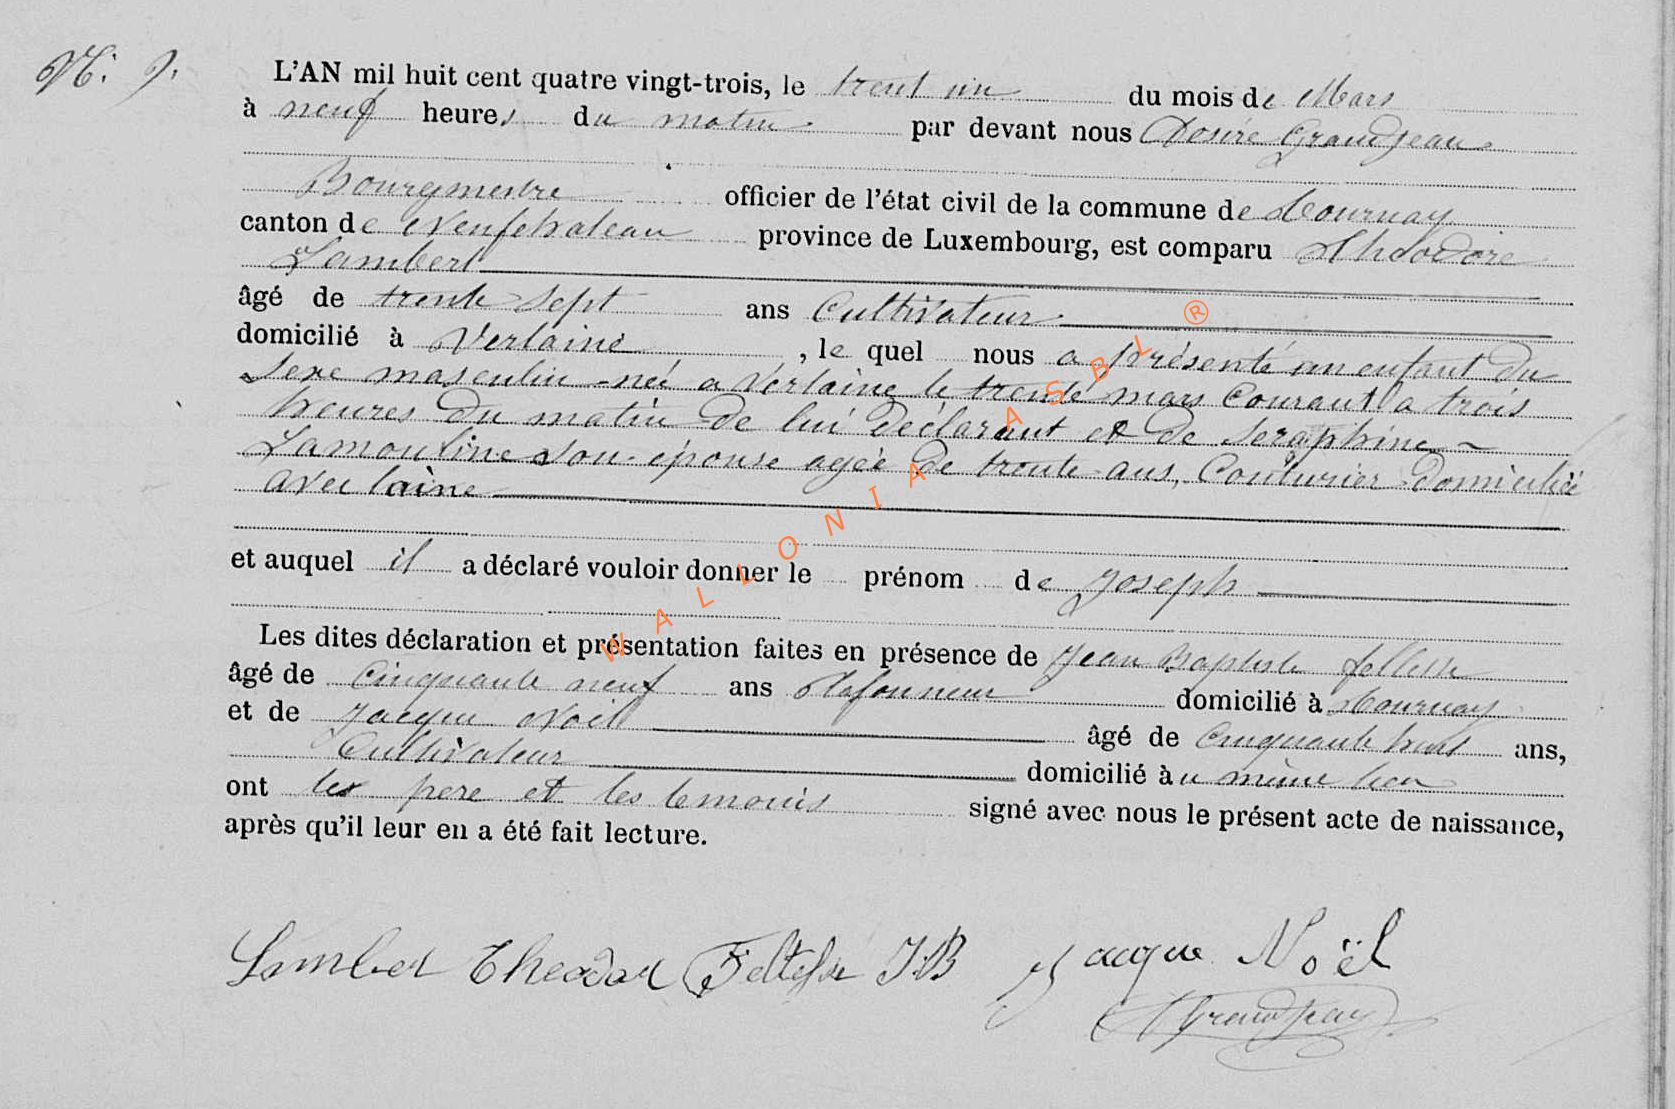 N: 9.
L'AN mil huit cent quatre vingt-trois, le trent un du mois de Mars
à neuf heures du matin par devant nous Désiré Grandjean
Bourgmestre officier de l'état civil de la commune de Tournay
canton de Neufchateau province de Luxembourg, est comparu Théodore
Lambert
âgé de trente sept ans Cultivateur
domicilié à Verlaine , le quel nous a présenté un enfant du
sexe masculin né a Verlaine le trente mars Courant a trois
heures du matin de lui déclarant et de Seraphine
Lamouline son épouse agée de trente ans, Couturier domiciliée
a Verlaine
et auquel il a déclaré vouloir donner le prénom de Joseph
Les dites déclaration et présentation faites en présence de Jean Baptiste
âgé de Cinquante neuf ans Plafonneur domicilié à Tournay
et de Jacque Noël âgé de Cinquante trois ans,
Cultivateur domicilié à u même lieu
ont les pere et les temoins signé avec nous le présent acte de naissance,
après qu'il leur en a été fait lecture.
Lambert Theodor Feltesse J:B Jacque Noël
Grandjean
WALLONIA ASBL ®